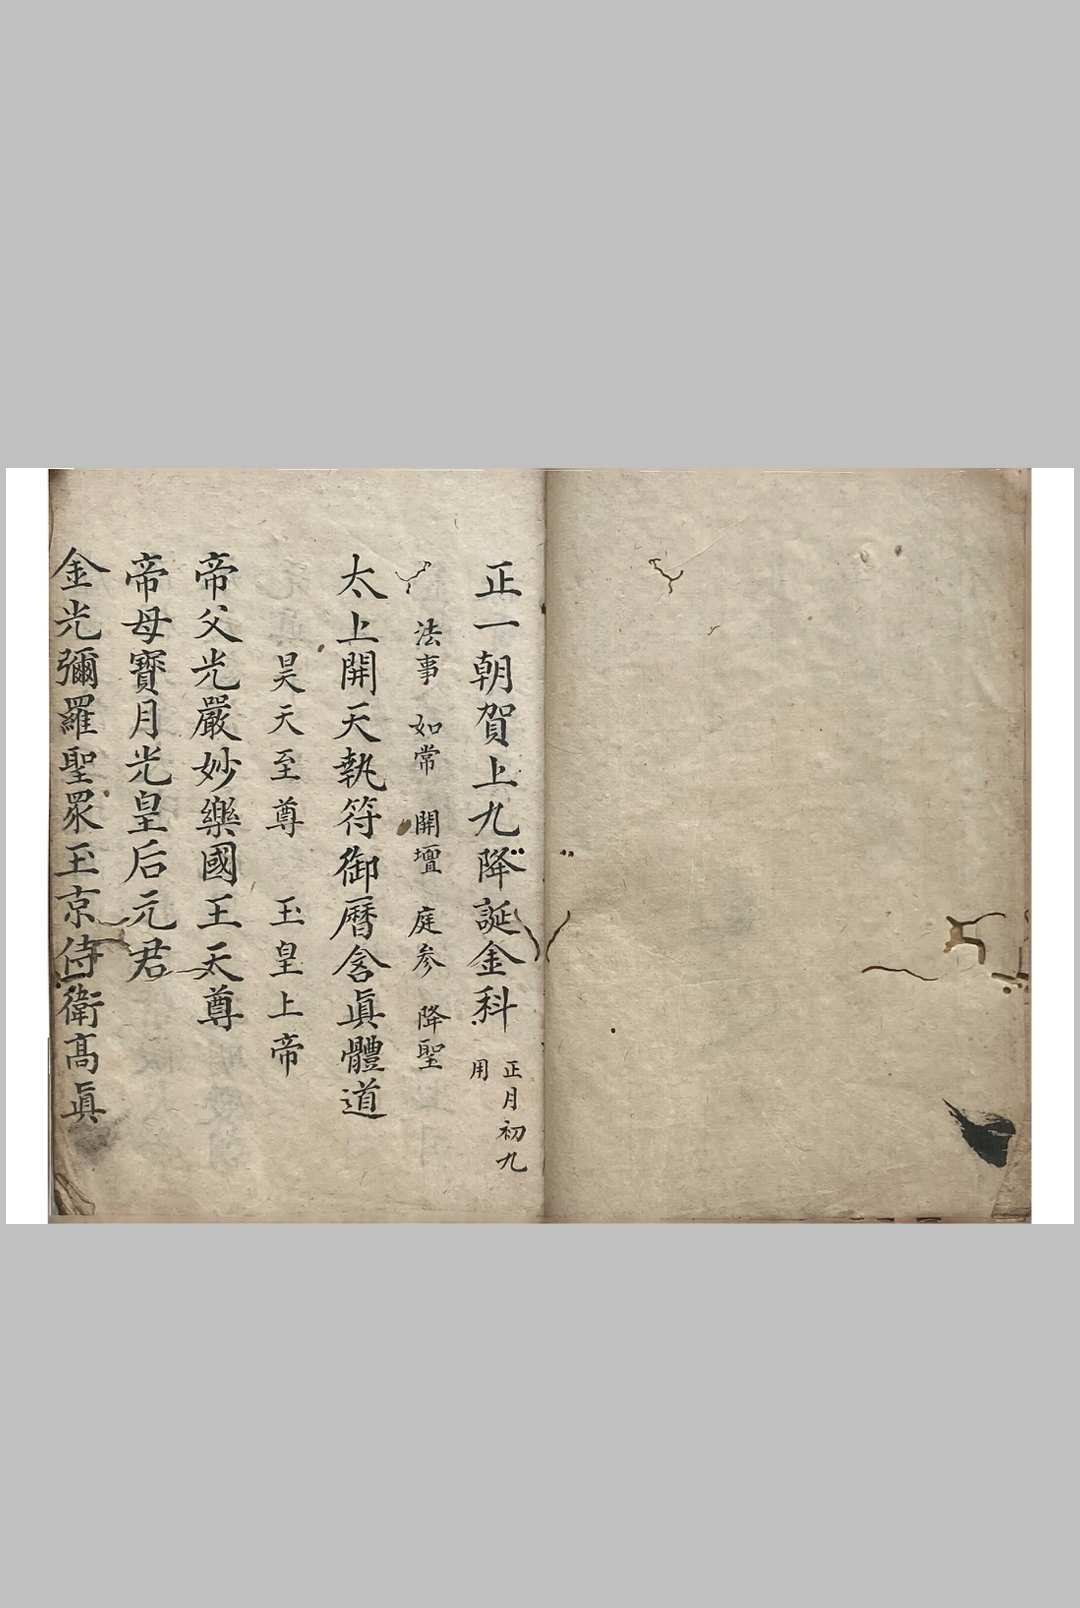 正一朝賀上九降誕金科 正月初九用
法事 如常 開壇 庭参 降聖
太上開天執符御曆含眞體道
昊天至尊 玉皇上帝
帝父光嚴妙樂國王天尊
帝母寶月光皇后元君
金光彌羅聖眾玉京侍衛高眞